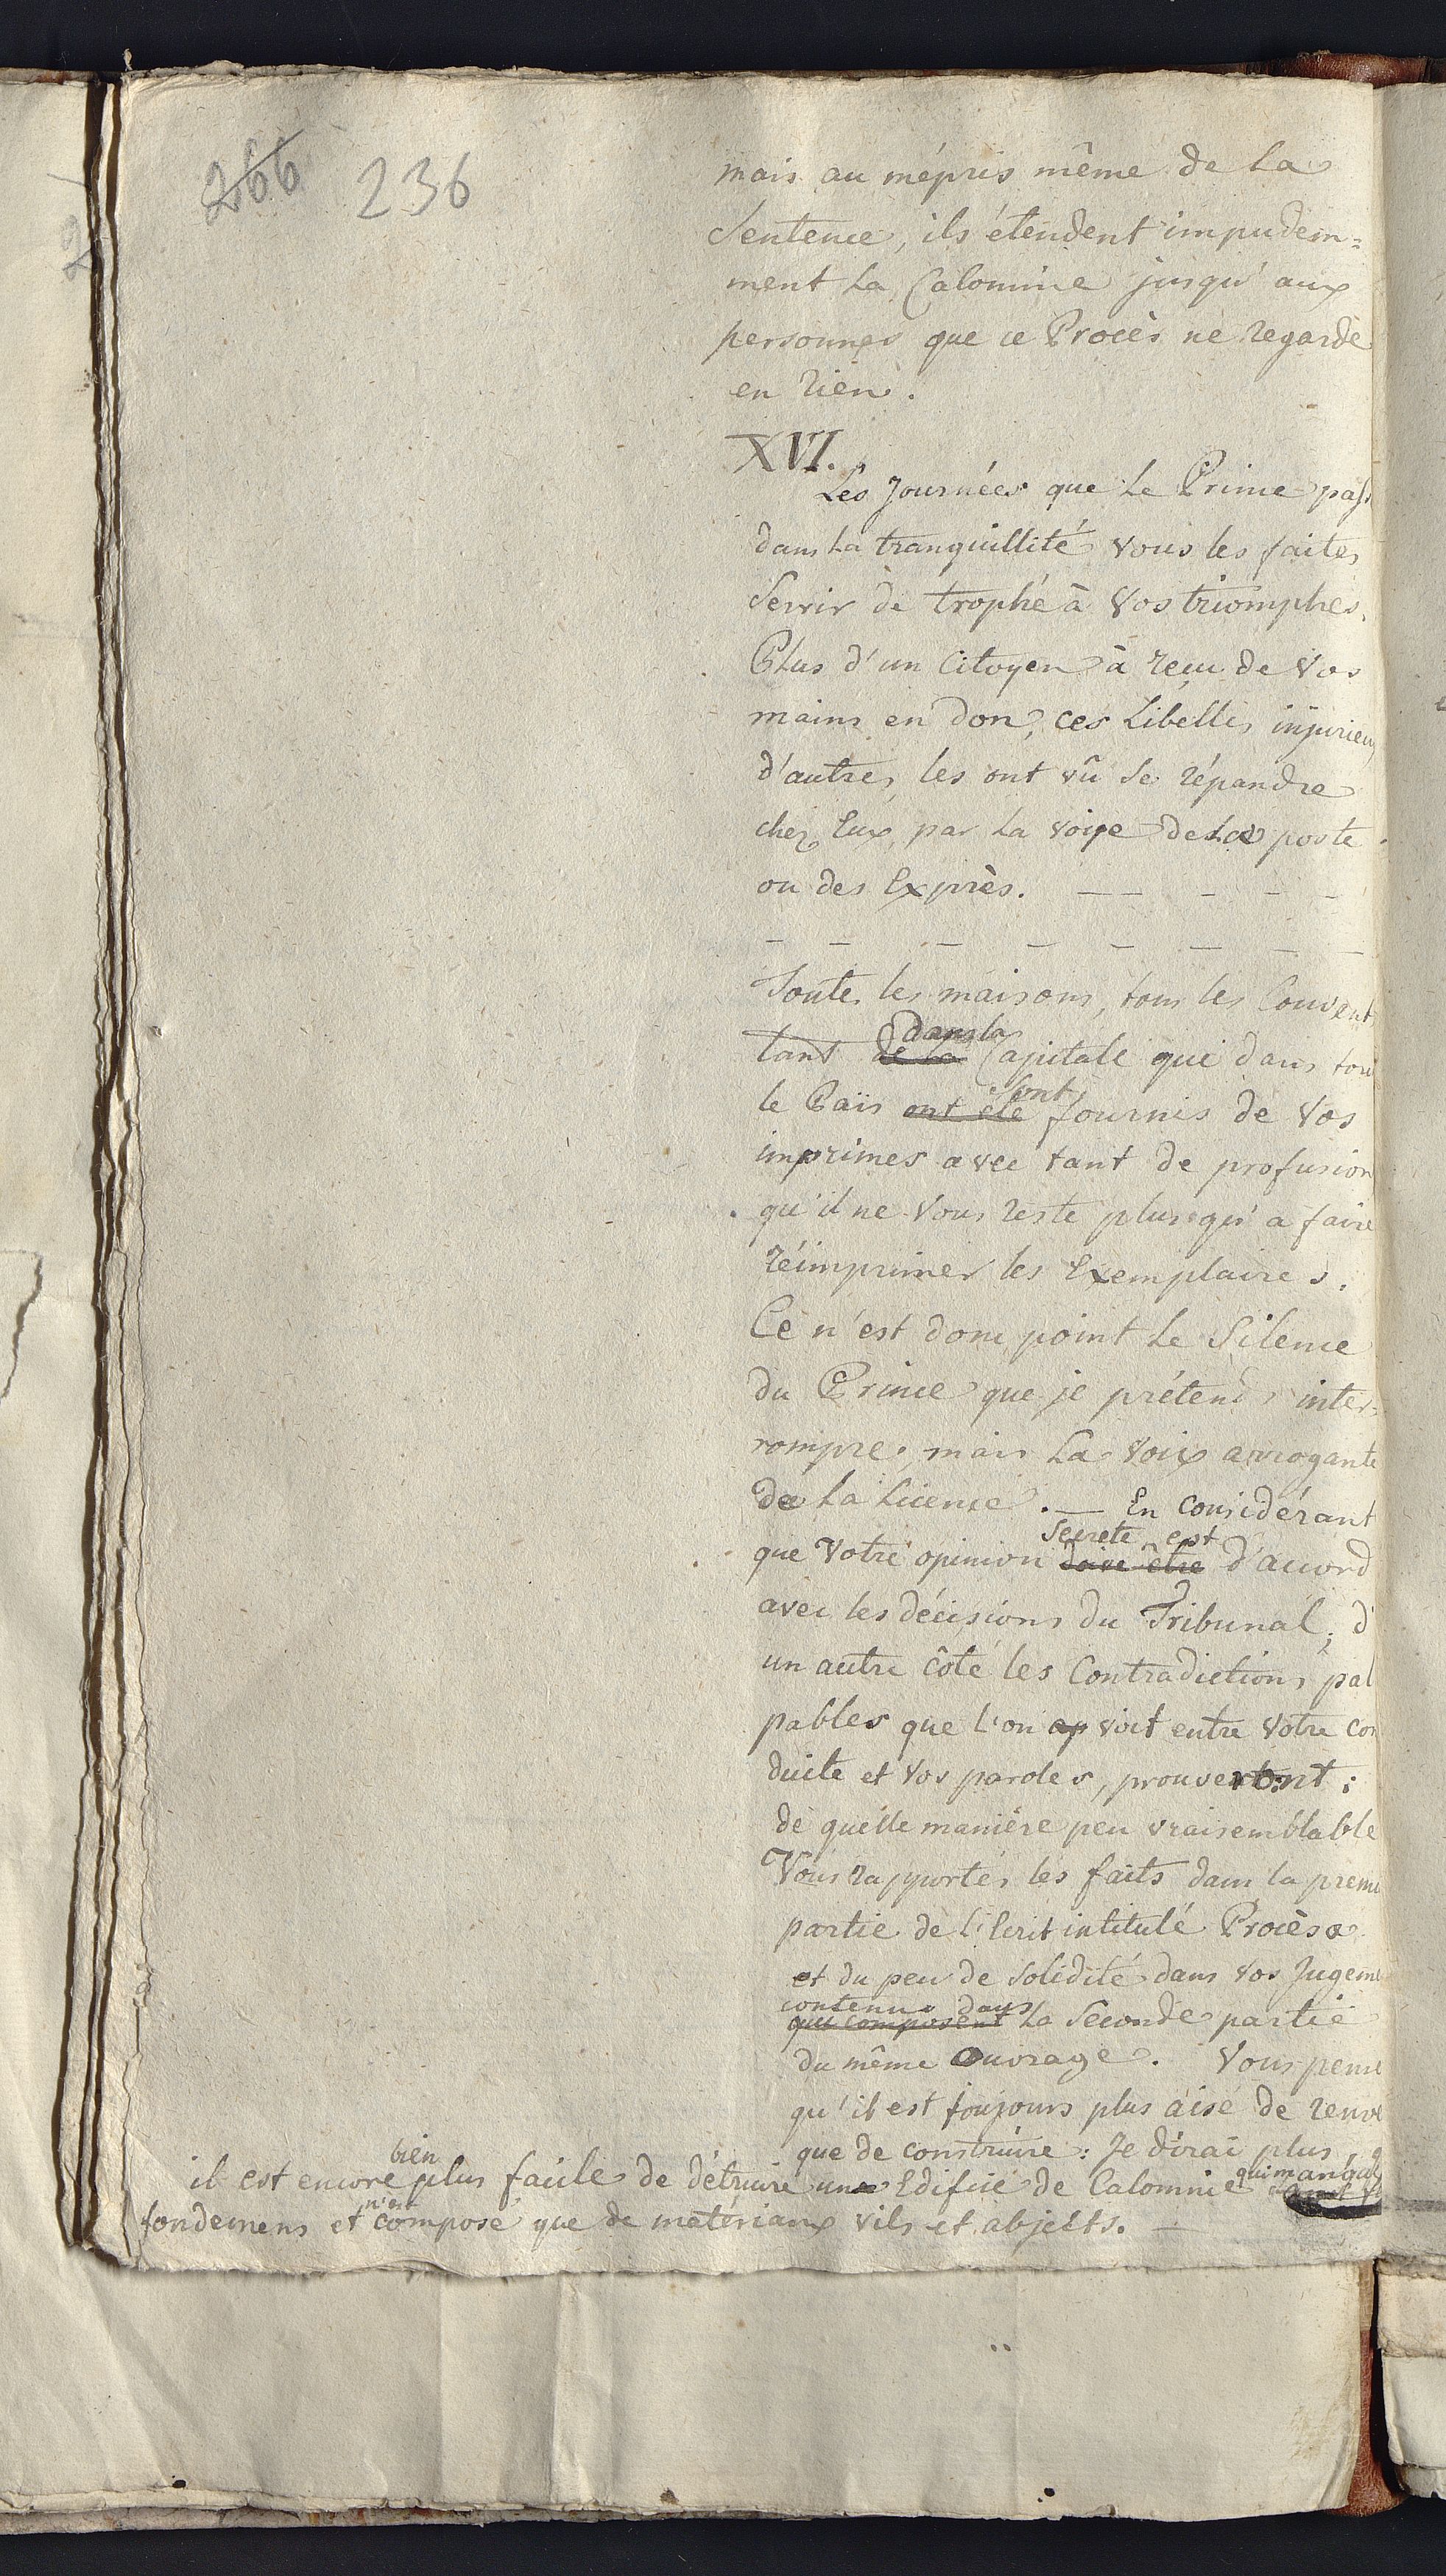 266 236
mais au mépris même de la
Sentence, ils étendent impudem=
ment la Calomnie jusqu'aux
personnes que ce Procès ne regarde
en rien.
XVI.
Les Journées que le Prince pass
dans la tranquillité vous les faites
Servir de trophé à Vos triomphes.
Plus d'un Citoyen à reçu de Vos
mains en don, ces Libelles injurieux
d'autres les ont vû se répandre
chez Eux, par la voiye de la poste
ou des Exprès. — — - - -
- - - - - - - -
Toutes les maisons, tous les Couvent
dans la
tant de la Capitale que dans tout
sont
le Païs ont été fournis de Vos
imprimes avec tant de profusion
qu'il ne Vous reste plus qu'a faire
réimprimer les Exemplaires.
Ce n'est donc point le Silence
du Prince que je prétends inter-
rompre, mais la voix arrogante
de la Licence. — En considérant
Secrete est
que Votre opinion doive être d'accord
avec les décisions du Tribunal; d'
un autre côté les Contradictions pal
pables que l'on ap voit entre Votre con
duite et Vos paroles, prouveront;
de quelle manière peu vraisemblable
Vous rapportés les faits dans la premi
partie de l'Ecrit intitulé Procès &
et du peu de Solidité dans vos Jugeme
contenus dans
qui composent la Seconde partie
du même Ouvrage. Vous pens
qu'il est toujours plus aisé de renve
que de construire: Je dirai plus,
bien
il est encore plus facile de détruire une Edifice de Calomnie qui manque
n'est
fondemens et composé que de matériaux vils et abjects. —